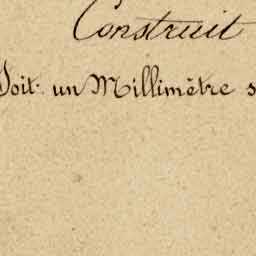 Construit
Soit: un Millimètre